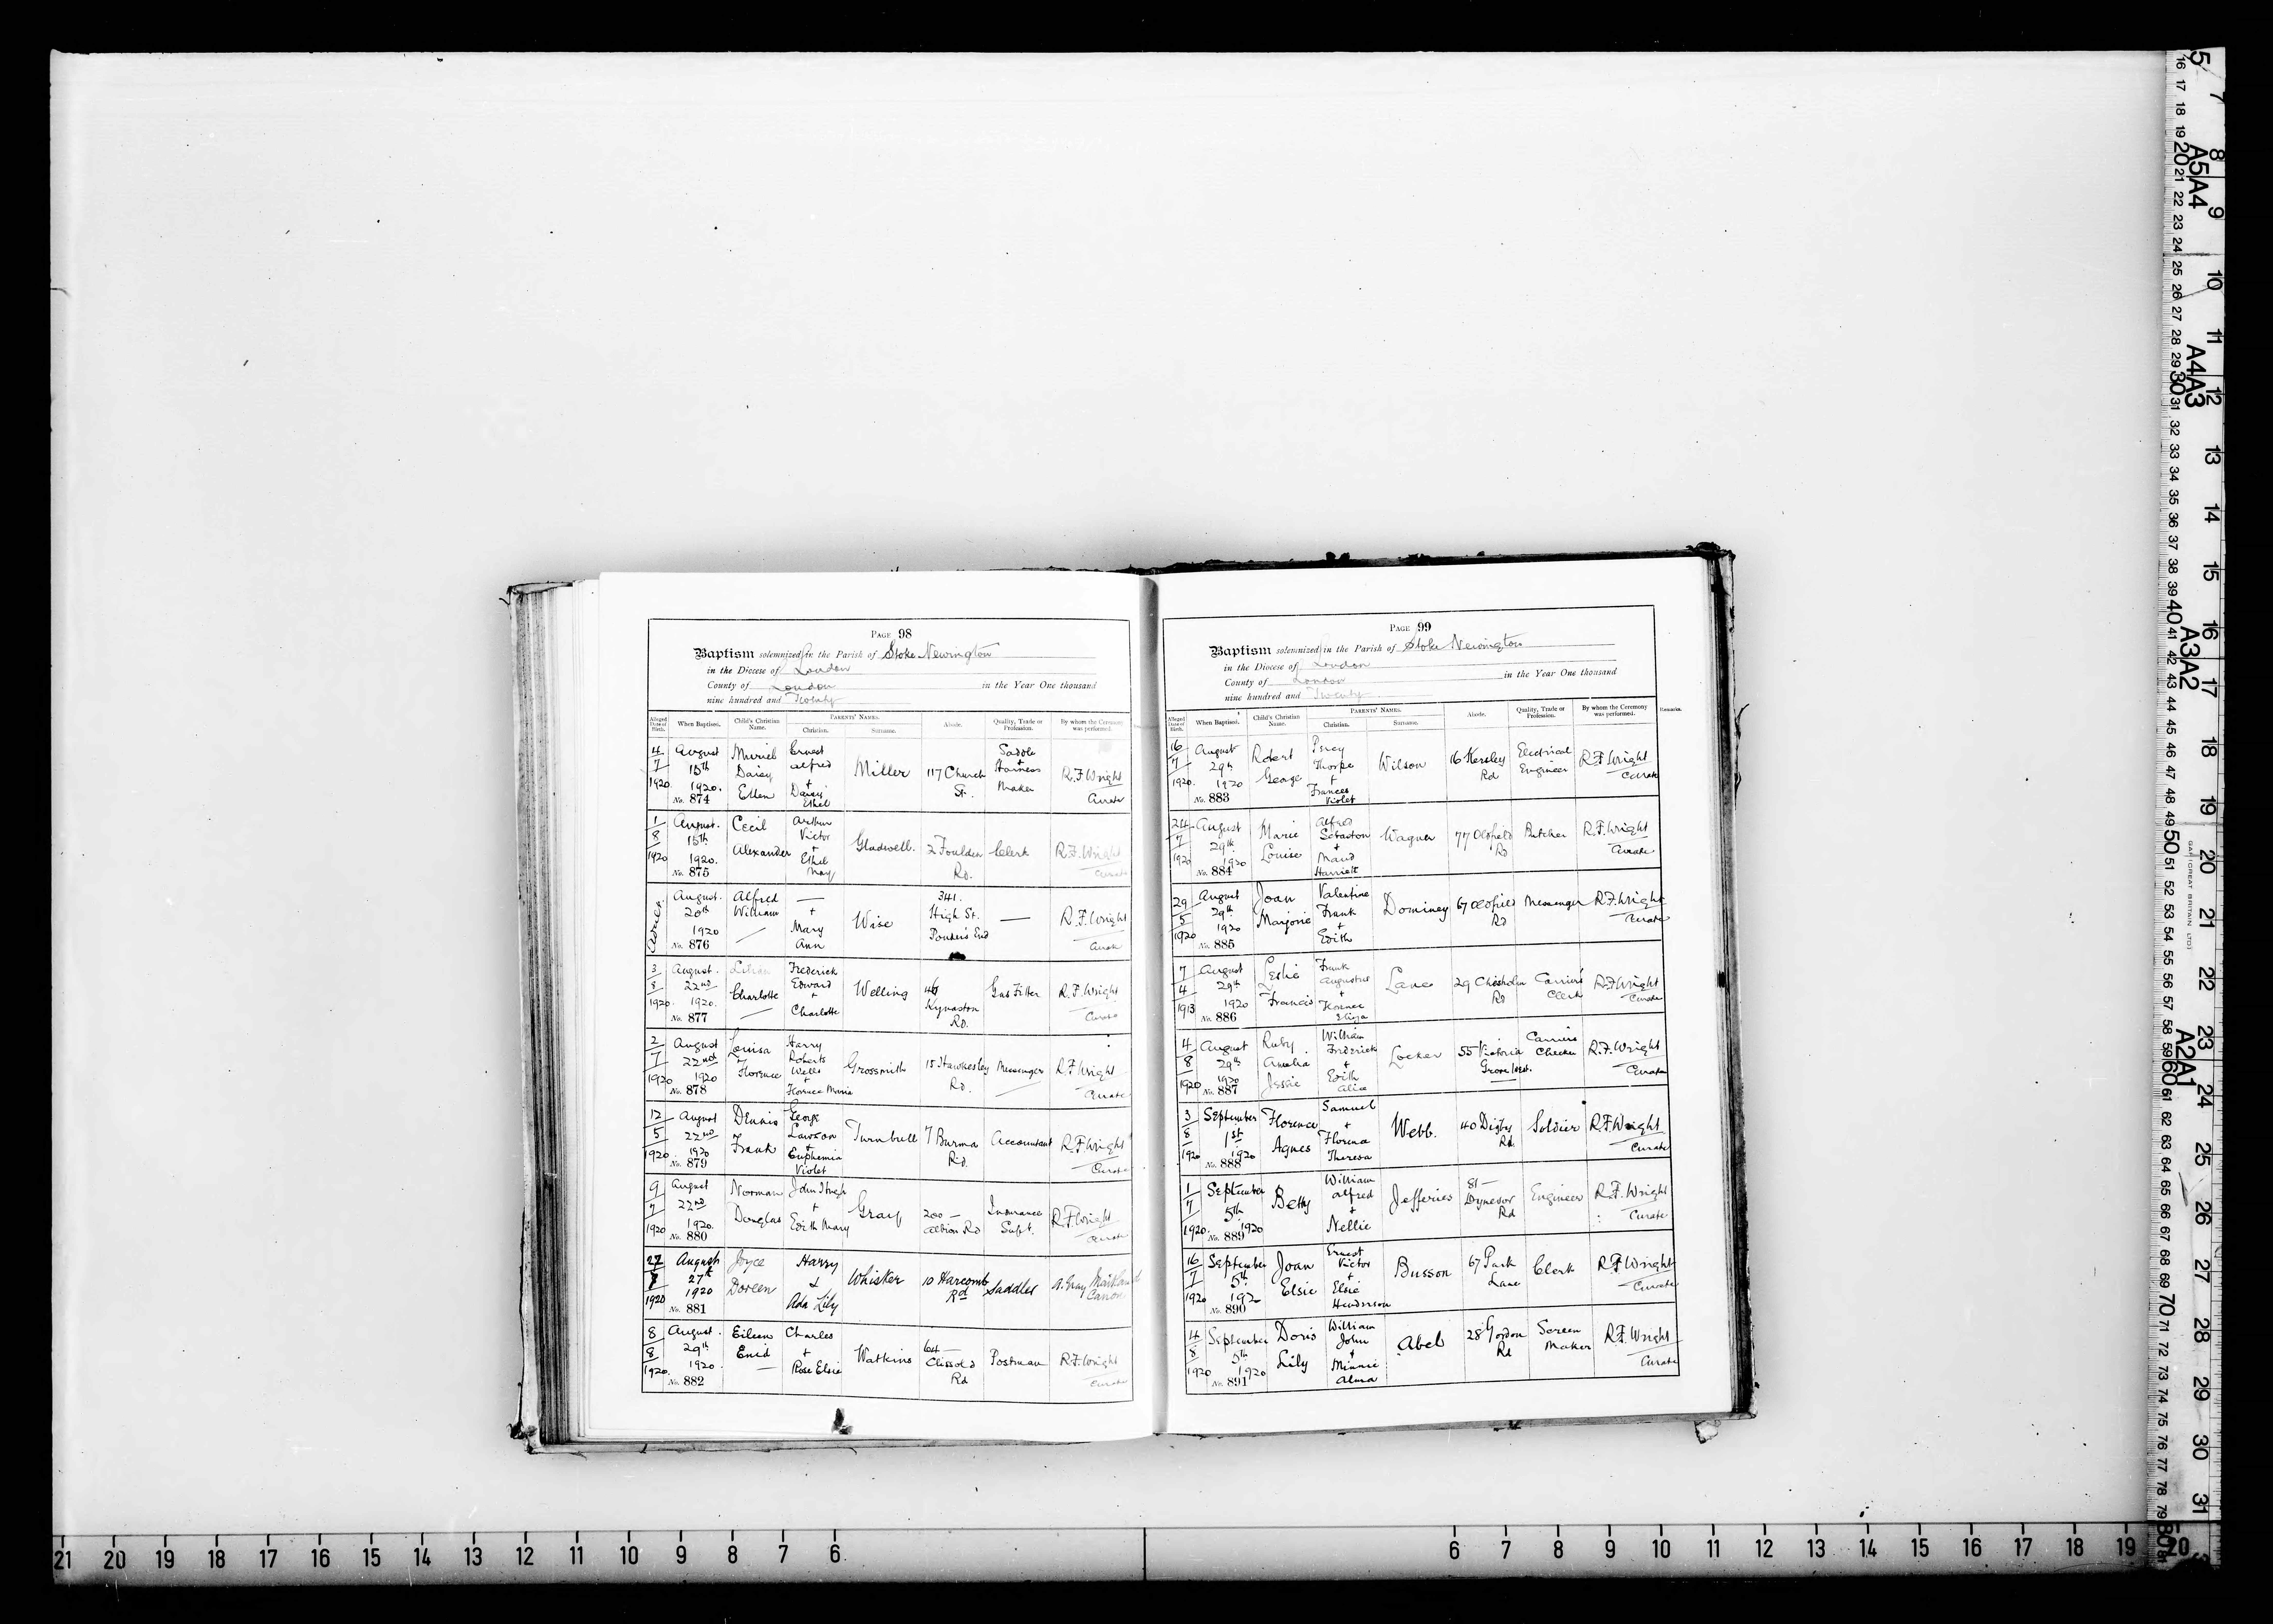 PAGE 98
Baptism solemnized in the Parish of Stoke Newington
in the Diocese of London
County of London in the Year One thousand
nine hundred and Twenty
Alleged Date of Birth. When Baptised. Child's Christian Name. PARENTS' NAMES. Christian. Surname. Abode. Quality, Trade or Profession. By whom the Ceremony was performed.
4 7 1920 August 15th 1920. No. 874 Muriel Daisy Ellen Ernest Alfred + Daisy Ethel Miller 117 Church St. Saddle + Harness Maker R.F. Wright Curate
1 8 1920 August. 15th 1920. No. 875 Cecil Alexander Arthur Victor + Ethel May Gladwell. 2 Foulden Rd. Clerk R.F. Wright Curate
August. 20th 1920 No. 876 Alfred William — + Mary Ann Wise 341. High St. Ponders End — R.F. Wright Curate
3 8 1920. August. 22nd 1920. No. 877 Charlotte Frederick Edward + Charlotte Welling 46 Kynaston Rd. Gas Fitter R.F. Wright Curate
2 7 1920 August 22nd 1920 No. 878 Louisa Florence Harry Roberts Wells + Florence Minnie Grossmith 15 Hawkesley Rd. Messenger R.F. Wright Curate
12 5 1920. August 22nd 1920 No. 879 Dennis Frank George Lawson + Euphemia Violet Turnbull 7 Burma Rd. Accountant R.F. Wright Curate
9 7 1920 August 22nd 1920. No. 880 Norman Douglas John Hugh + Edith Mary Gray 200 — Albion Rd Insurance Supt. R.F. Wright Curate
27 1920 August 27th 1920 No. 881 Joyce Doreen Harry & Ada Lily Whisker 10 Harcomb Rd Saddler A. Gray Maitland Canon
8 8 1920. August. 29th 1920 No. 882 Eileen Enid — Charles + Rose Elsie Watkins 64 — Clissold Rd Postman R.F. Wright Curate
PAGE 99
Baptism solemnized in the Parish of Stoke Newington
in the Diocese of London
County of London in the Year One thousand
nine hundred and Twenty
Alleged Date of Birth. When Baptised. Child's Christian Name. PARENTS' NAMES. Christian. Surname. Abode. Quality, Trade or Profession. By whom the Ceremony was performed. Remarks.
16 7 1920. August 29th 1920 No. 883 Robert George Percy Thorpe + Frances Violet Wilson 16 Kersley Rd Electrical Engineer R.F. Wright Curate
24 7 1920 August 29th 1920 No. 884 Marie Louise Alfred Sebastan + Maud Harriett Wagner 77 Oldfield Rd Butcher R.F. Wright Curate
29 5 1920 August 29th 1920 No. 885 Joan Marjorie Valentine Frank + Edith Dominey 67 Oldfield Rd Messenger R.F. Wright Curate
7 4 1913 August 29th 1920 No. 886 Leslie Francis Frank Augustus + Florence Eliza Lane 29 Chesholm Rd Carriers' Clerk R.F. Wright Curate
4 8 1920 August 29th 1920 No. 887 Ruby Amelia Jessie William Frederick + Edith Alice Locker 55 Victoria Grove Carriers Checker R.F. Wright Curate
3 8 1920 September 1st 1920 No. 888 Florence Agnes Samuel + Florence Theresa Webb. 40 Digby Rd. Soldier R.F. Wright Curate
1 7 1920. September 5th 1920 No. 889 Betty William Alfred + Nellie Jefferies 81 — Dynevor Rd Engineer R.F. Wright Curate
16 7 1920 September 5th 1920 No. 890 Joan Elsie Ernest Victor + Elsie Henderson Busson 67 Park Lane Clerk R.F. Wright Curate
4 8 1920 September 5th 1920 No. 891 Doris Lily William John + Minnie Alma Abel 28 Gordon Rd Screen Maker R.F. Wright Curate
21 20 19 18 17 16 15 14 13 12 11 10 9 8 7 6 6 7 8 9 10 11 12 13 14 15 16 17 18 19 20
A5 A4
A4 A3
A3 A2
A2 A1
7 8 9 10 11 12 13 14 15 16 17 18 19 20 21 22 23 24 25 26 27 28 29 30 31